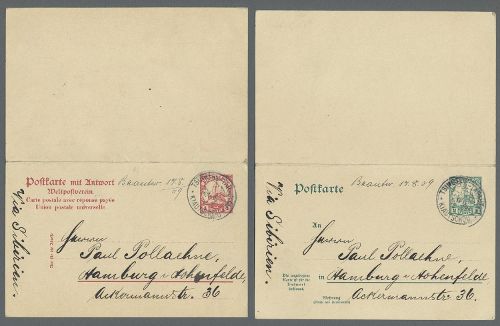 Postkarte mit Antwort
Weltpostverein.
Carte postale avec réponse payée
Union postale universelle.
Beantw. 17.8.
09
Via Sibirien.
Herrn
Paul Pollaehne,
Hamburg-Hohenfelde,
Ackermannstr. 36.
Postkarte
Beantw. 17.8.09
Via Sibirien.
An
Herrn
Paul Pollaehne,
in Hamburg-Hohenfelde,
Ackermannstr. 36.
Wohnung